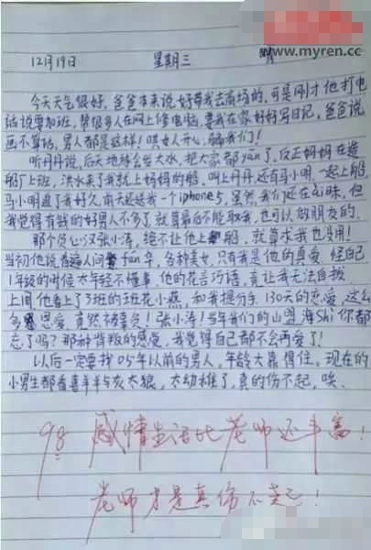 www.myren.cc
12月19日 星期三
今天天气很好，爸爸本来说好带我去商场的，可是刚才他打电
话说要加班，帮很多人在网上修电脑，要我在家好好写日记，爸爸说
话不算话，男人都是这样！哄女人开心，骗我们！
听丹丹说，后天地球会发大水，把大家都yan了，反正妈妈在造
船厂上班，洪水来了我就上妈妈的船，叫上丹丹还有马小明，一起上船，
马小明追了我好久前天还送我一个iphone5，虽然我们还在ai昧，但
我觉得有钱的好男人不多了，就算最后不能取我，也可以做朋友的。
那个负心汉张小涛，绝不让他上船，就算求我也没用！
当初他说看遍人间fan华，各种美女，只有我是他的真爱，怪自己
1年级的时候太年轻不懂事，他的花言巧语，竟让我无法自拔，
上周他看上了3班的班花小燕，和我提分手，130天的恋爱，这么
多恩爱，竟然被辜负！张小涛！当年我们的山盟海shi你都
忘了吗？那种背叛的感觉，我觉得自己都不会再爱了！
以后一定要找05年以前的男人，年龄大靠得住，现在的
小男生都看喜羊羊与灰太狼，太幼稚了，真的伤不起，唉
98 感情生活比老师还丰富！
老师才是真伤不起！